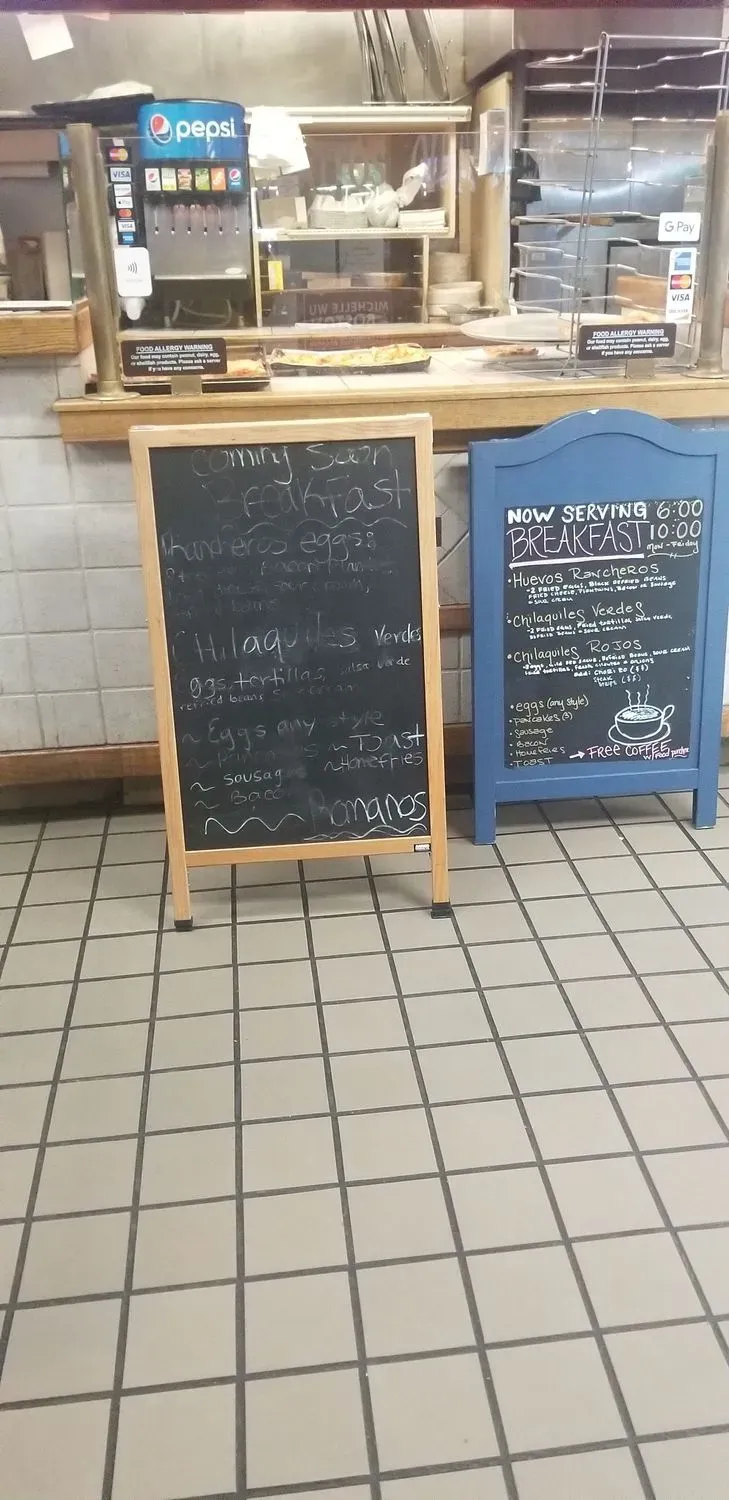 pepsi
VISA
Pay
VISA
G Pay
VISA
MICHELLE WU
BOSTON
FOOD ALLERGY WARNING
Our food may contain peanut, dairy, egg,
or shellfish products. Please ask a server
if you have any concerns.
FOOD ALLERGY WARNING
Our food may contain peanut, dairy, egg,
or shellfish products. Please ask a server
if you have any concerns.
coming Soon
BreakFast
Rhancheros eggs
sour cream,
CHilaquiles Verdes
ggs, tortillas, salsa verde
refried beans
~ Eggs any style
~ Toast
~ Homefries
~ sausag
~ Bacon
Romanos
NOW SERVING 6:00
BREAKFAST 10:00
Mon - Friday
• Huevos Rancheros
- 2 Fried eggs, Black Refried Beans
Fried Cheese, Plantains, Bacon or Sausage
+ Sour Cream
• Chilaquiles Verdes
- 2 Fried eggs, Fried tortillas, Salsa Verde,
Refried Beans + Sour Cream
• Chilaquiles Rojos
Refried Beans, Sour Cream
Add: Chorizo ($$)
Steak
Strips ($$)
• eggs (any style)
• pancakes (3)
• sausage
• Bacon
• Homefries
• TOAST
→ FREE COFFEE
w/ Food purchase